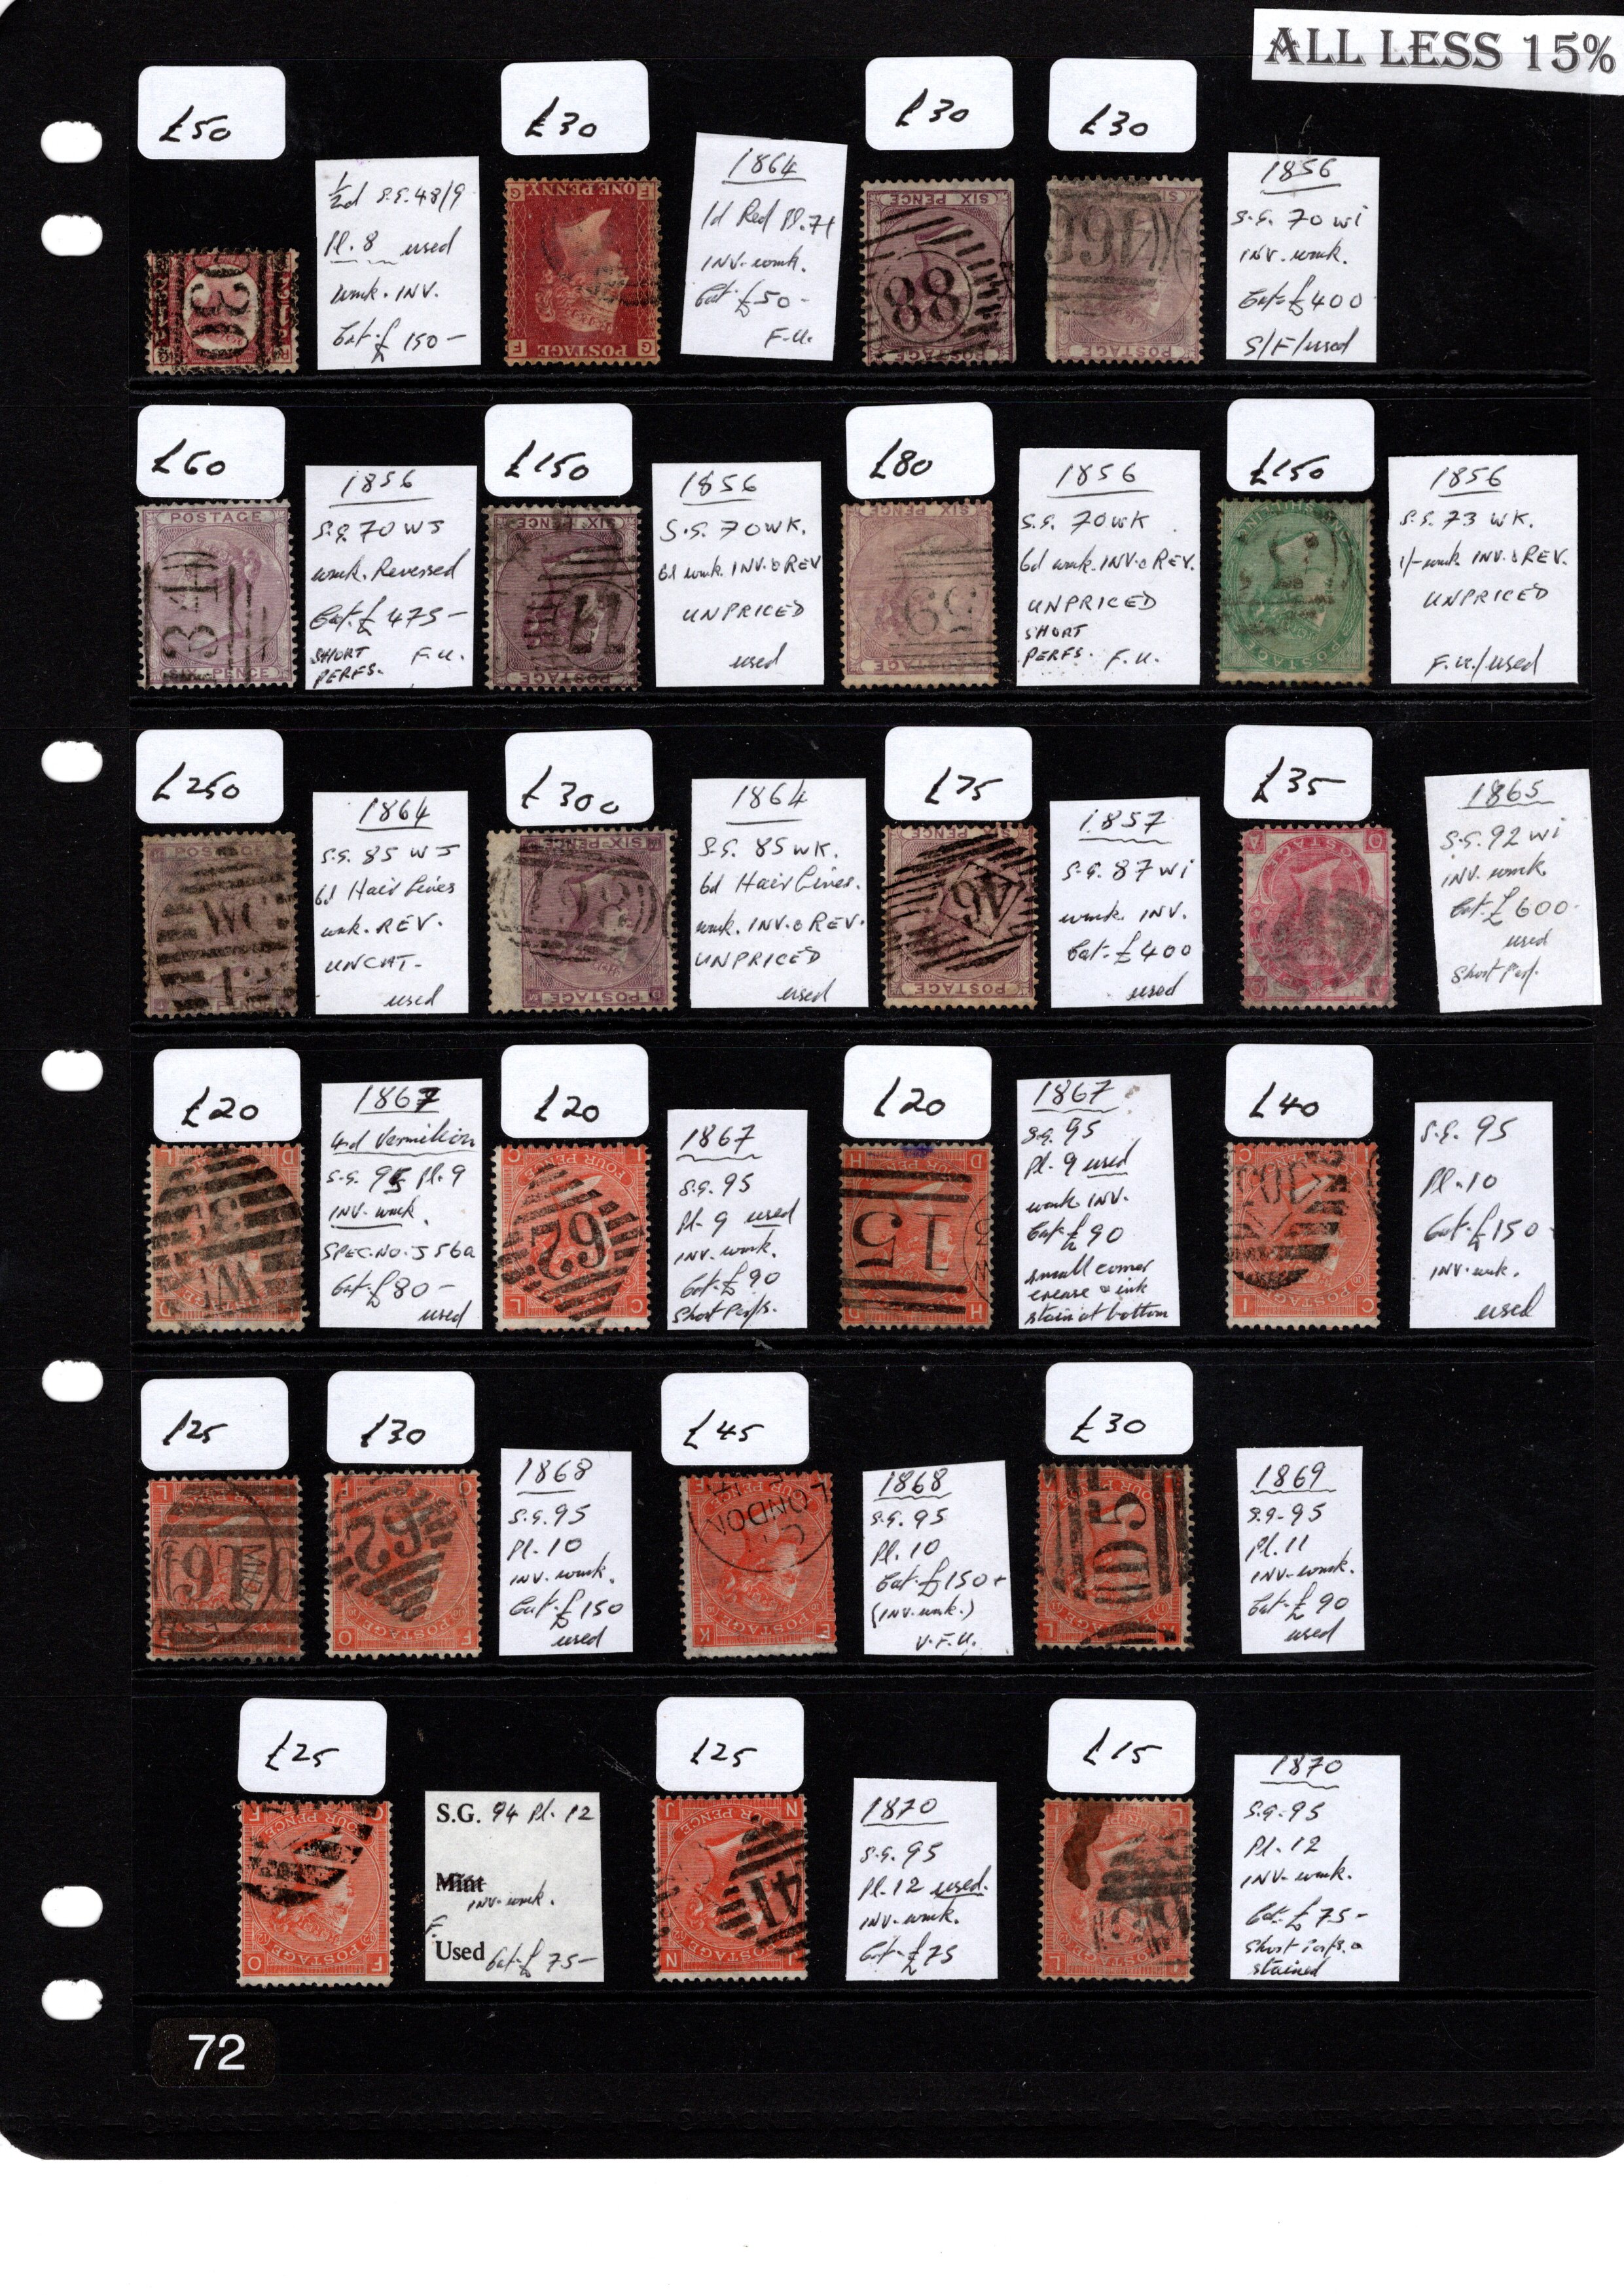 ALL LESS 15%
£50
½d S.G. 48/9
Pl. 8 used
wmk. INV.
Cat. £ 150-
£30
1864
1d Red Pl. 71
INV. wmk.
Cat. £50-
F.U.
£30
£30
1856
S.G. 70 wi
INV. wmk.
Cat. £400
S/F/used
£60
1856
S.G. 70 WJ
wmk. Reversed
Cat. £ 475-
SHORT F.U.
PERFS.
£150
1856
S.G. 70WK.
6d wmk. INV. & REV
UNPRICED
used
£80
1856
S.G. 70WK
6d wmk. INV. & REV.
UNPRICED
SHORT
PERFS. F.U.
£150
1856
S.G. 73 WK.
1/- wmk. INV. & REV.
UNPRICED
F.U./used
£250
1864
S.G. 85 WJ
6d Hair Lines
wmk. REV.
UNCAT.
used
£300
1864
S.G. 85WK.
6d Hair Lines.
wmk. INV. & REV.
UNPRICED
used
£75
1857
S.G. 87 wi
wmk. INV.
Cat. £400
used
£35
1865
S.G. 92 wi
INV. wmk.
Cat. £600-
used
Short Perf.
£20
1867
4d Vermilion
S.G. 95 Pl. 9
INV. wmk.
SPEC. NO. J56a
Cat. £80-
used
£20
1867
S.G. 95
Pl. 9 used
INV. wmk.
Cat. £90
Short Perfs.
£20
1867
S.G. 95
Pl. 9 used
wmk INV.
Cat. £90
small corner
crease & ink
stain at bottom
£40
S.G. 95
Pl. 10
Cat. £150
INV. wmk.
used
£25
£30
1868
S.G. 95
Pl. 10
INV. wmk.
Cat. £150
used
£45
1868
S.G. 95
Pl. 10
Cat. £150+
(INV. wmk.)
V.F.U.
£30
1869
S.G. 95
Pl. 11
INV. wmk.
Cat. £90
used
£25
S.G. 94 Pl. 12
Mint
INV. wmk.
F.
Used Cat. £ 75-
£25
1870
S.G. 95
Pl. 12 used.
INV. wmk.
Cat. £75
£15
1870
S.G. 95
Pl. 12
INV. wmk.
Cat. £75-
Short Perfs. &
stained
72